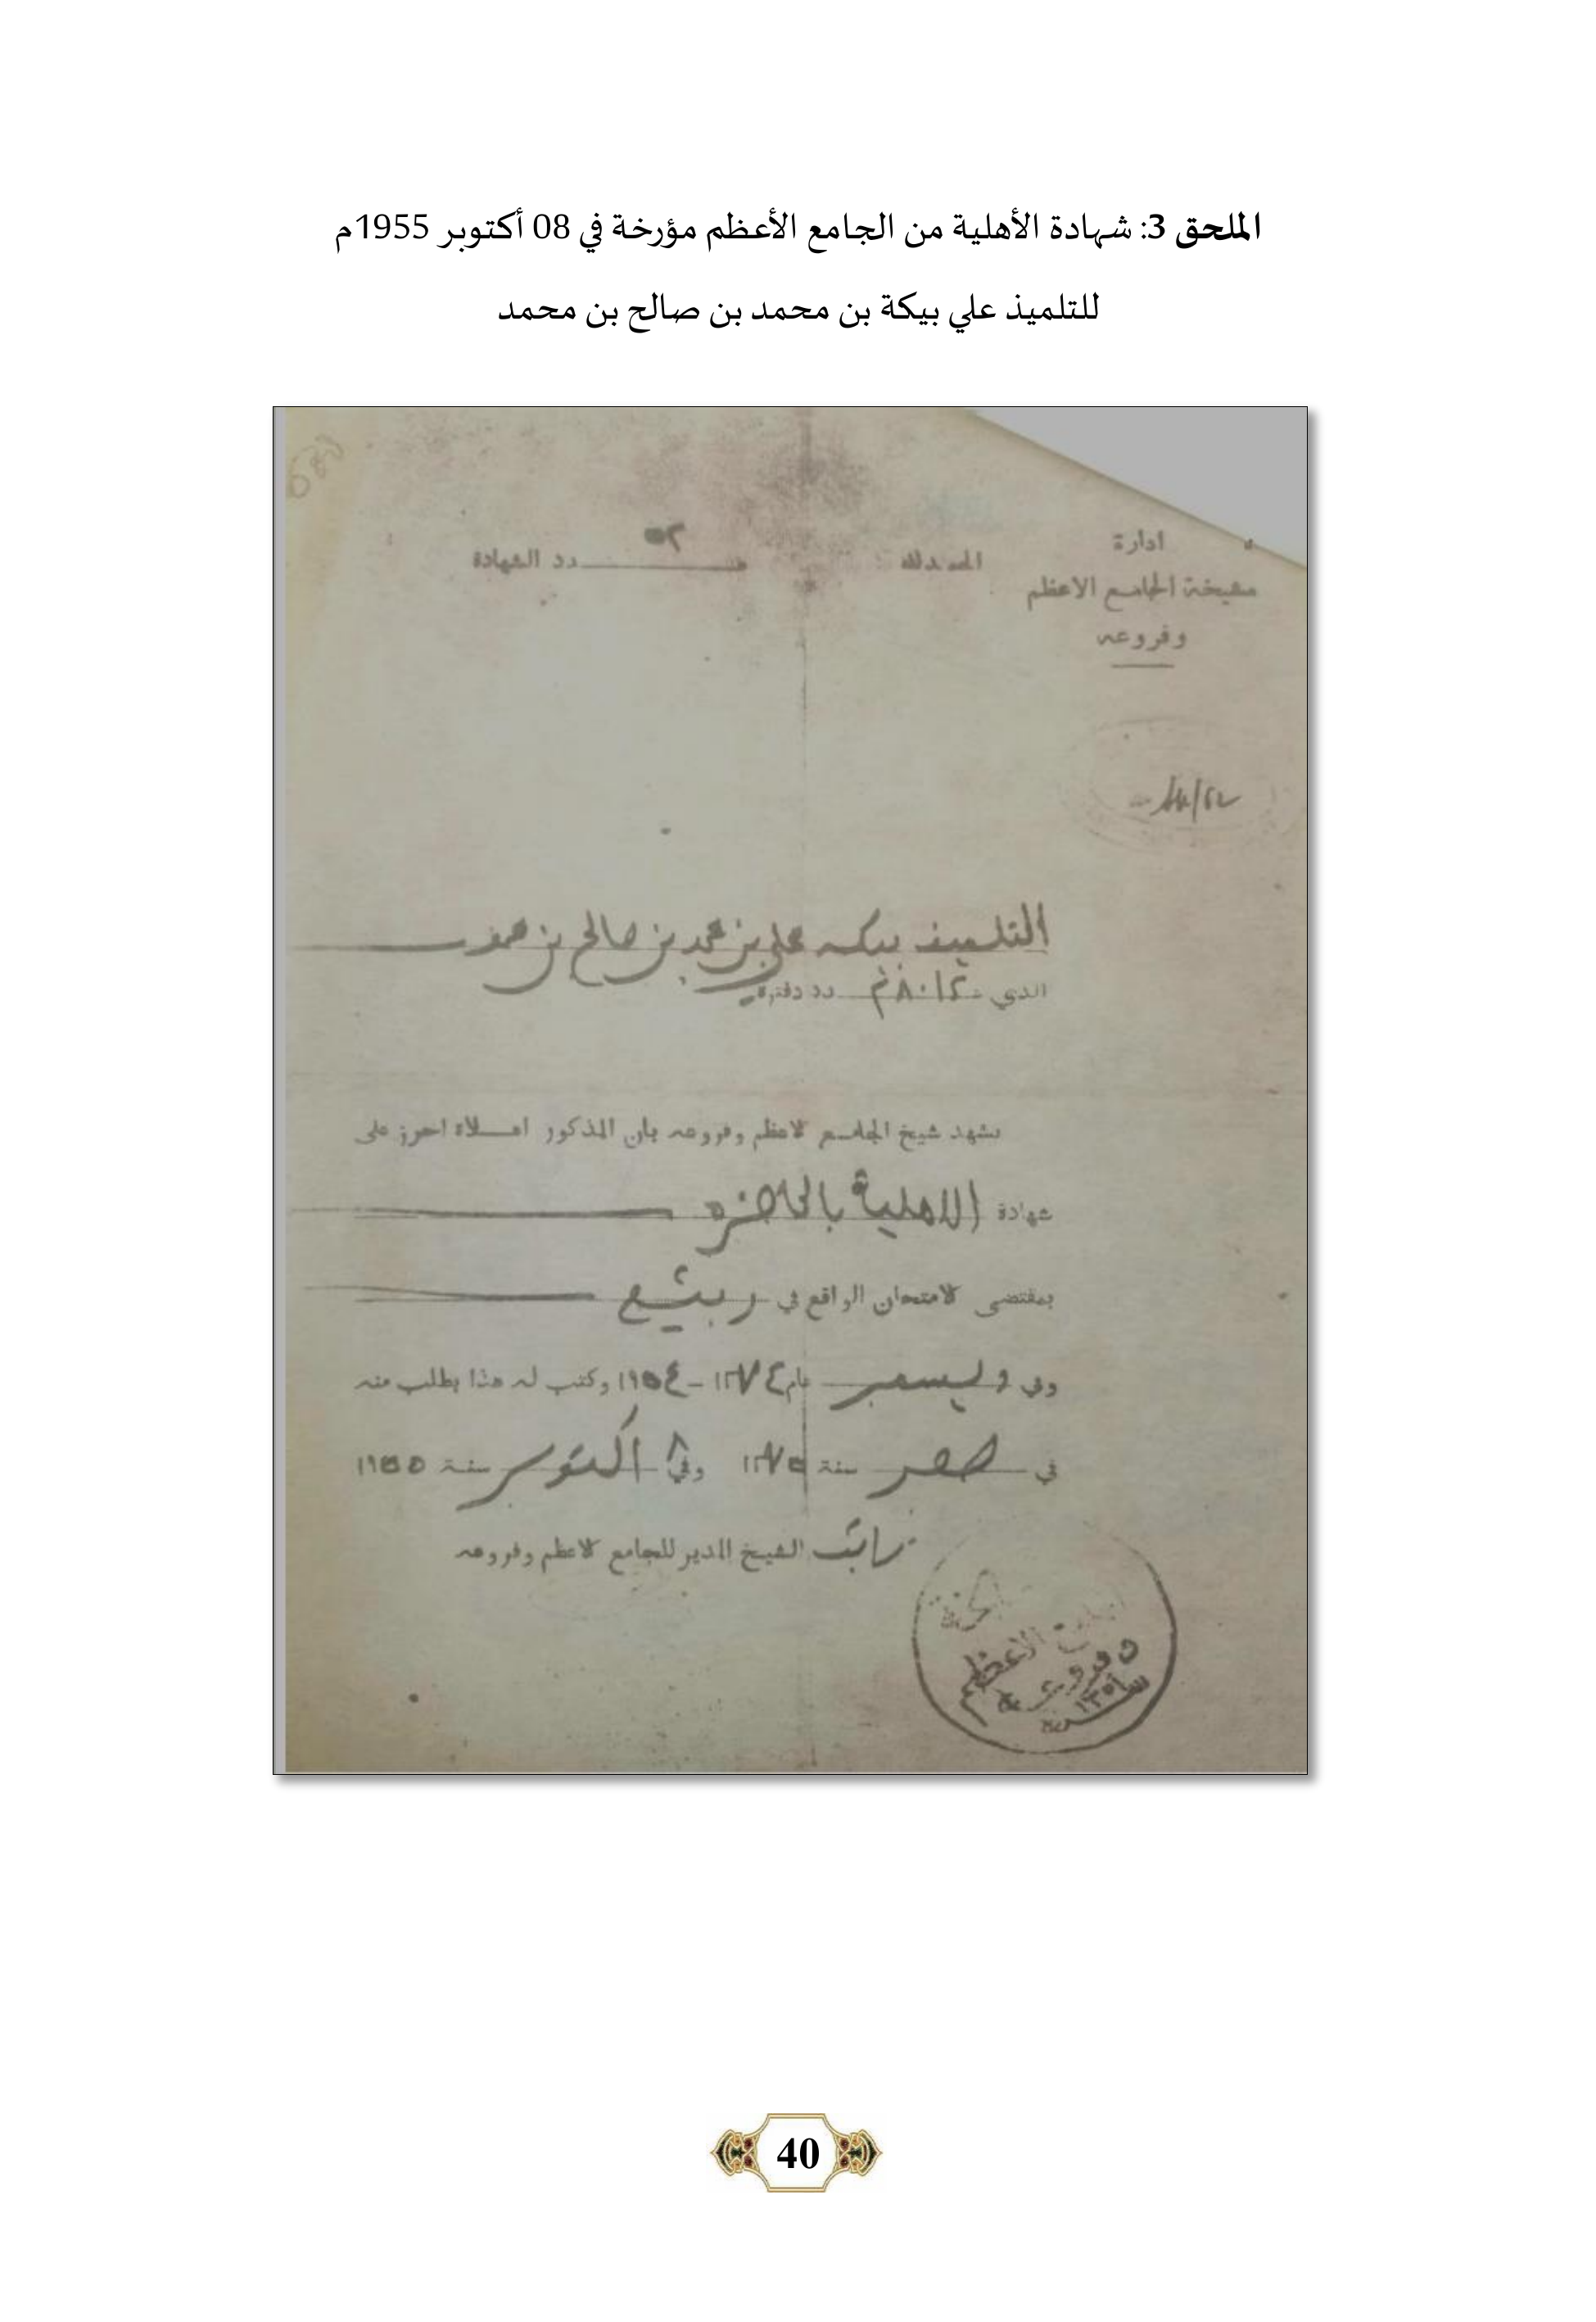 الملحق 3: شهادة الأهلية من الجامع الأعظم مؤرخة في 08 أكتوبر 1955م
للتلميذ علي بيكة بن محمد بن صالح بن محمد
ادارة
مشيخة الجامع الاعظم
وفروعه
الحمد لله
٥٢
دد الشهادة
التلميذ بيكه علي بن محمد بن صالح بن محمد
الذي دد دفتره
يشهد شيخ الجامع الاعظم وفروعه بان المذكور اعلاه احرز على
شهادة الاهلية بالحاضره
بمقتضى الامتحان الواقع في ربيع
وفي ديسمبر عام ١٣٧٤ - ١٩٥٤ وكتب له هذا بطلب منه
في صفر سنة ١٣٧٥ وفي ٨ اكتوبر سنة ١٩٥٥
الشيخ المدير للجامع الاعظم وفروعه
الاعظم
وفروعه
سنة ١٣٥١
40